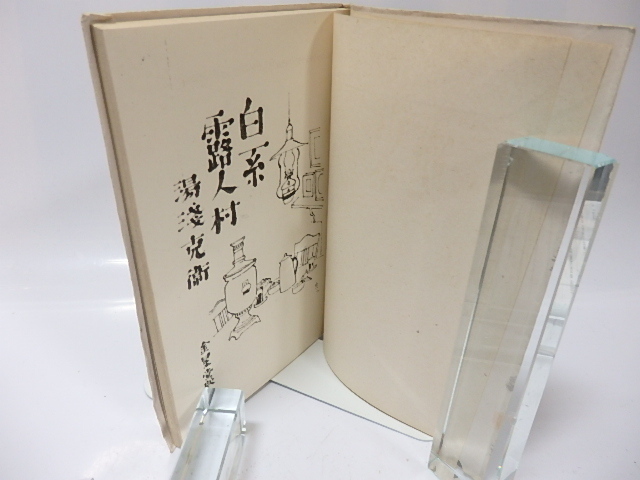 白系
露人村
湯淺克衛